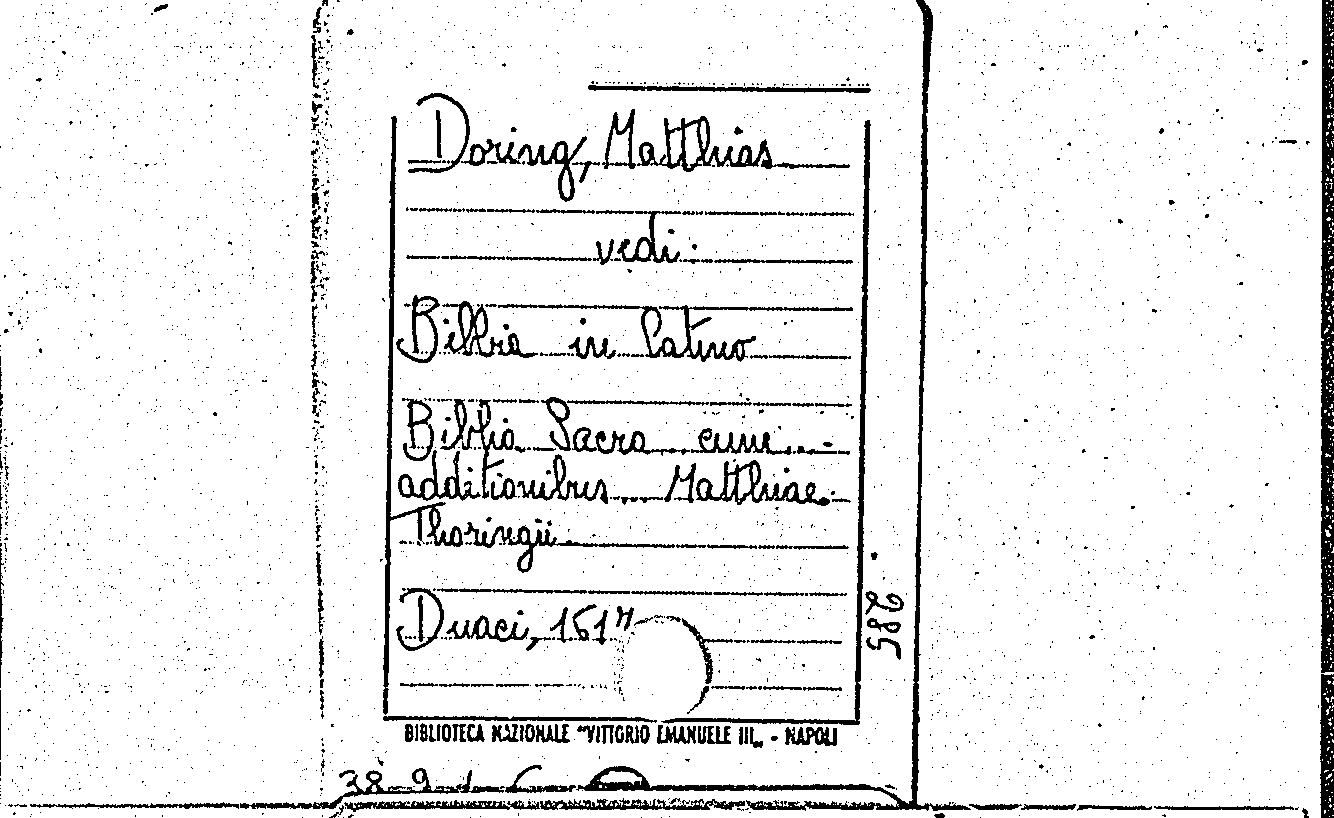 Doring, Matthias
vedi:
Bibbia in latino
Biblia Sacra cum...
additionibus... Matthiae
Thoringii.
Duaci, 1617
285
BIBLIOTECA NAZIONALE "VITTORIO EMANUELE III„ - NAPOLI
38-9